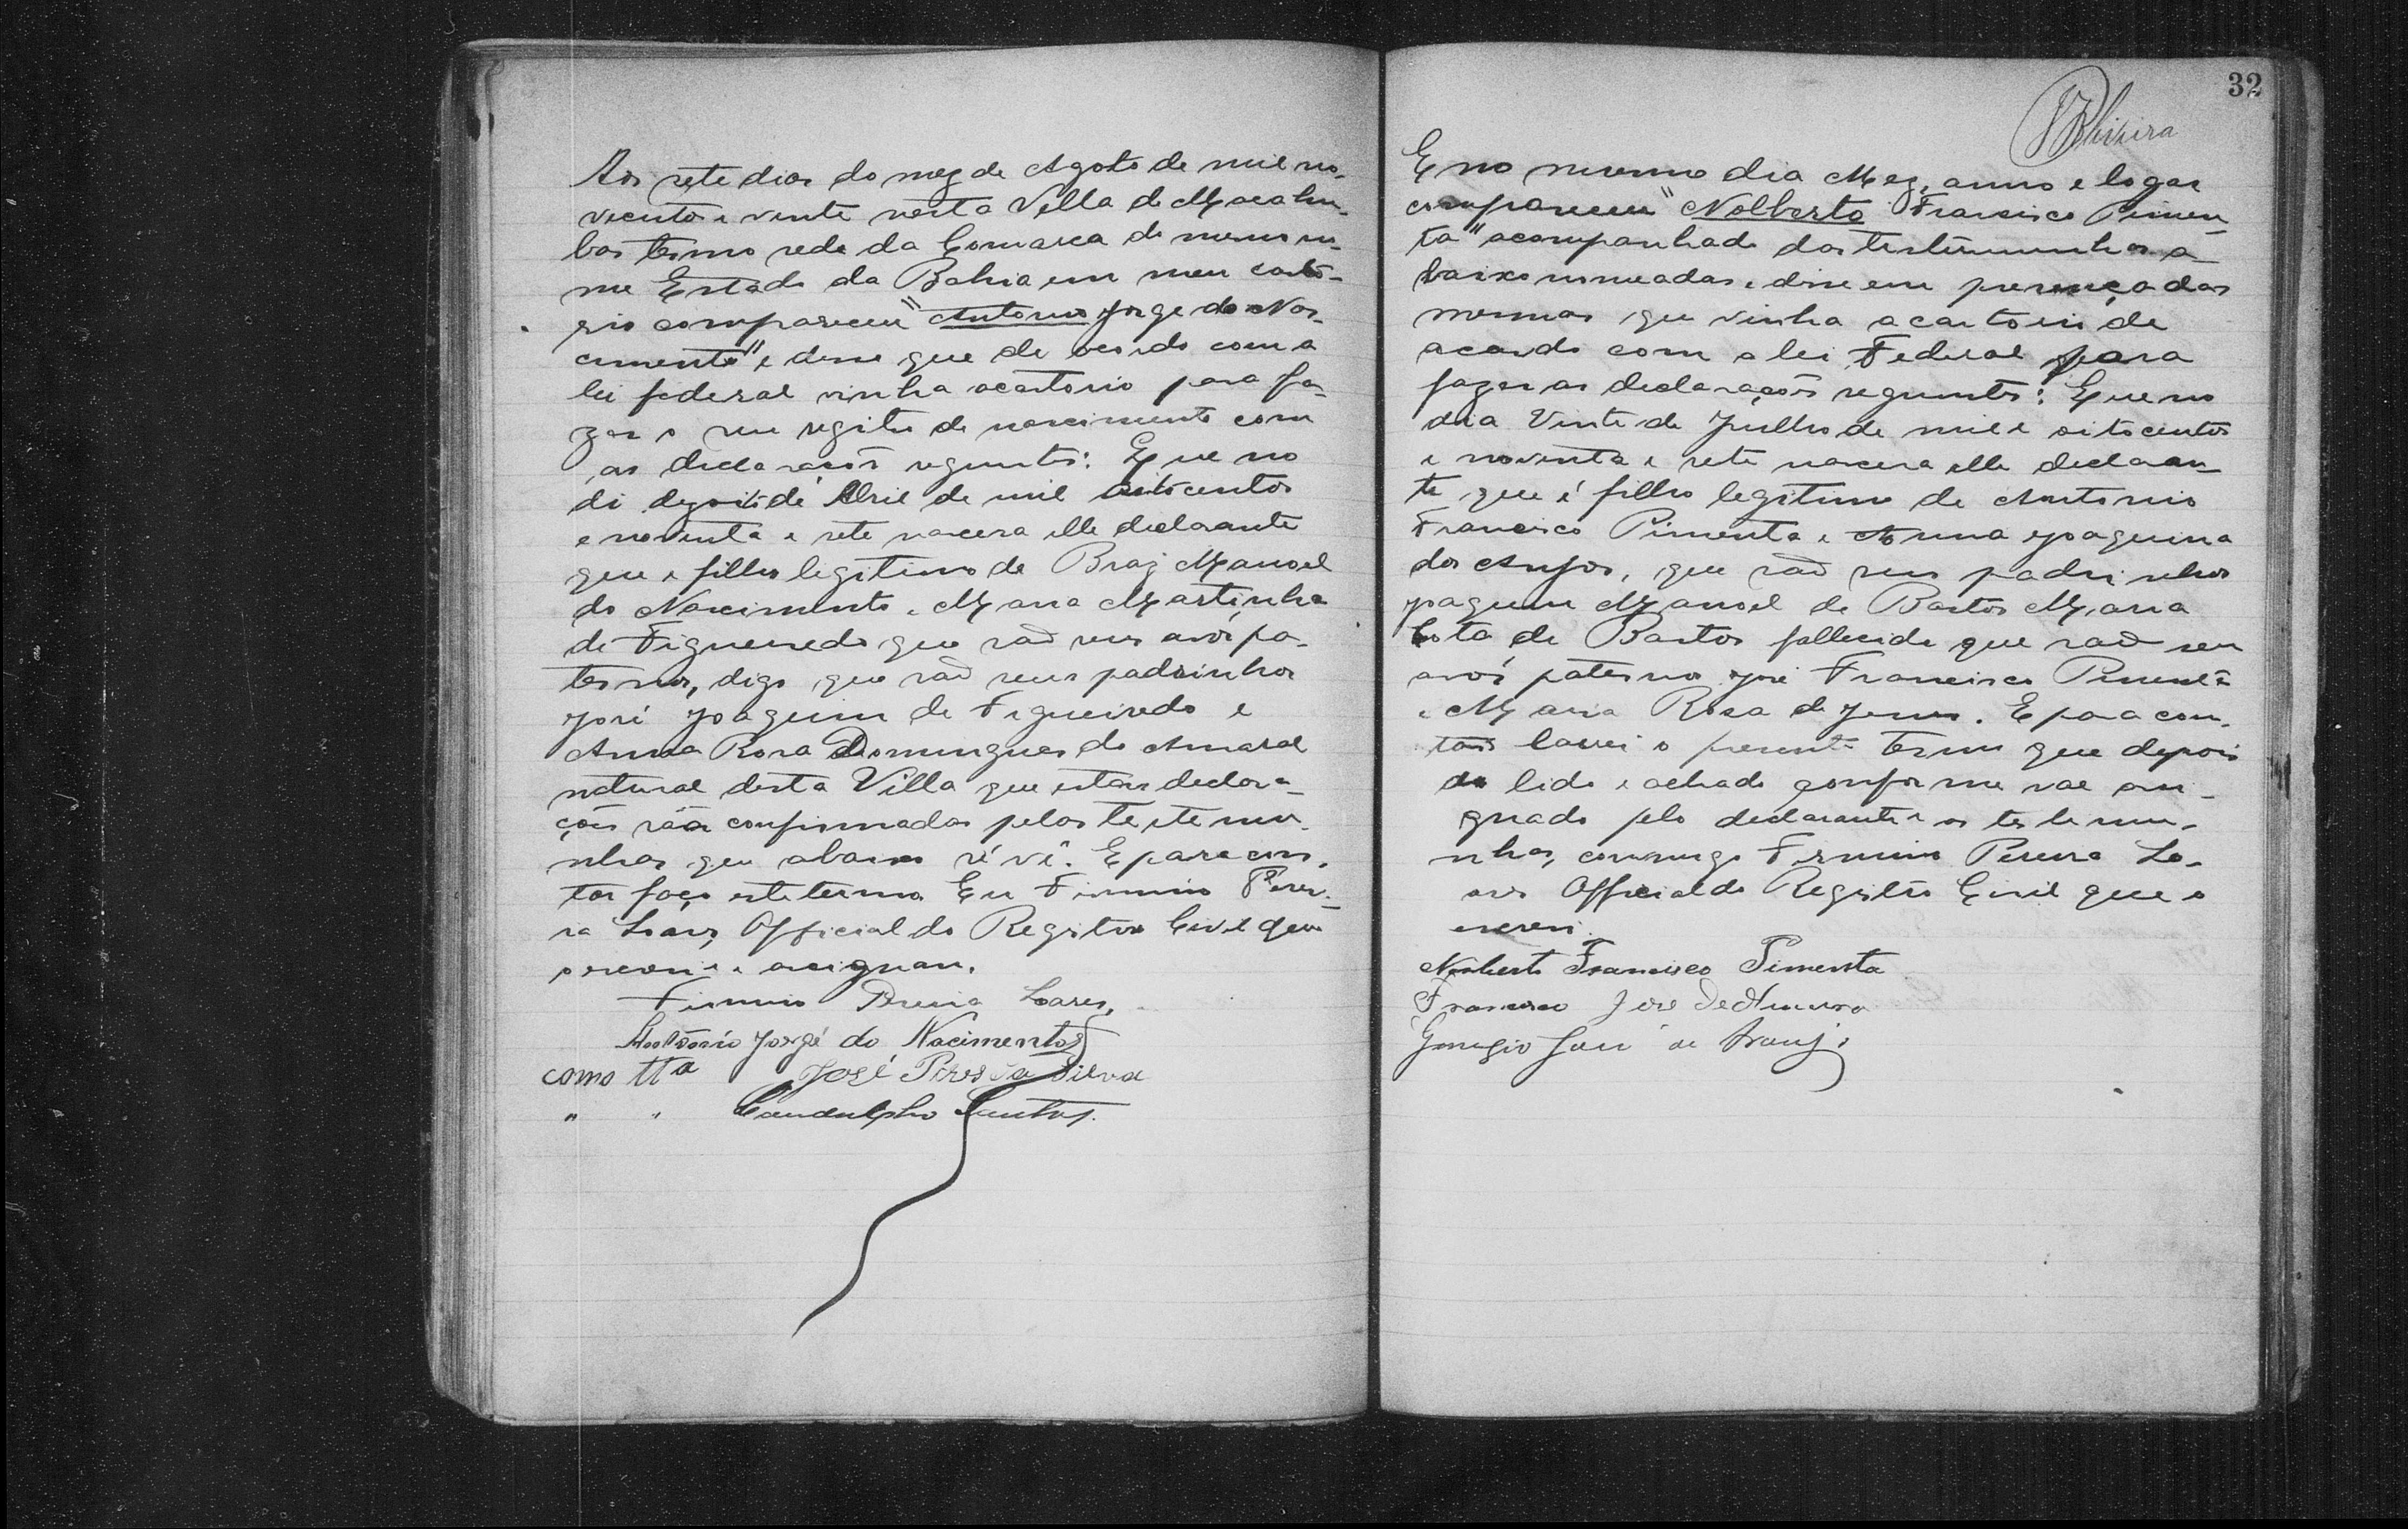 Aos sete dias do mez de Agosto de mil no-
vecentos e vinte nesta Villa de Macahu-
bas termo sede da Comarca do mesmo no-
me Estado da Bahia em meu carto-
rio compareceu "Antonio Jorge do Nas-
cimento" e disse que de acordo com a
lei federal vinha a cartorio para fa-
zer o seu registro de nascimento com
as declarações seguintes: Que no
di dezoito de Abril de mil oitocentos
e noventa e sete nascera elle declarante
que e filho legitimo de Braz Manoel
do Nascimento e Maria Martinha
de Figueiredo que são seus avós pa-
ternos, digo que são seus padrinhos
José Joaquim de Figueiredo e
Anna Rosa Domingues do Amaral
natural desta Villa que estas declara-
ções são confirmadas pelas testemu-
nhas que abaixo sé vê. E para cons-
tar faço este termo. Eu Firmino Perei-
ra Soares, Official do Registro Civil que
o escrevi e assignam.
Firmino Pereira Soares,
Antonio Jorgé do Nacimento
como tta José Pires da Silva
" " Candulpho Santos.
32
E no mesmo dia Mez, anno e logar
compareceu "Nolberto Francisco Pimen-
ta" acompanhado das testemunhas a-
baixo nomeadas e disse em presença das
mesmas que vinha a cartorio de
acordo com a lei Federal para
fazer as declarações seguintes: Que no
dia Vinte de Julho de mil e oitocentos
e noventa e sete nascera elle declaran-
te que é filho legitimo de Antonio
Francisco Pimenta e Anna Joaquina
dos Anjos, que são seus padrinhos
Joaquim Manoel de Bastos Maria
de Bastos fallecida que são seu
avós paterno José Francisco Pimenta
e Maria Rosa de Jesus. E para cons-
tar lavrei o presente termo que depois
de lido e achado conforme vae assi-
gnado pelo declarante e as testemu-
nhas, commigo Firmino Pereira So-
ares Official do Registro Civil que o
escrevi.
Norberto Francisco Pimenta
Francisco José de
José de Araujo